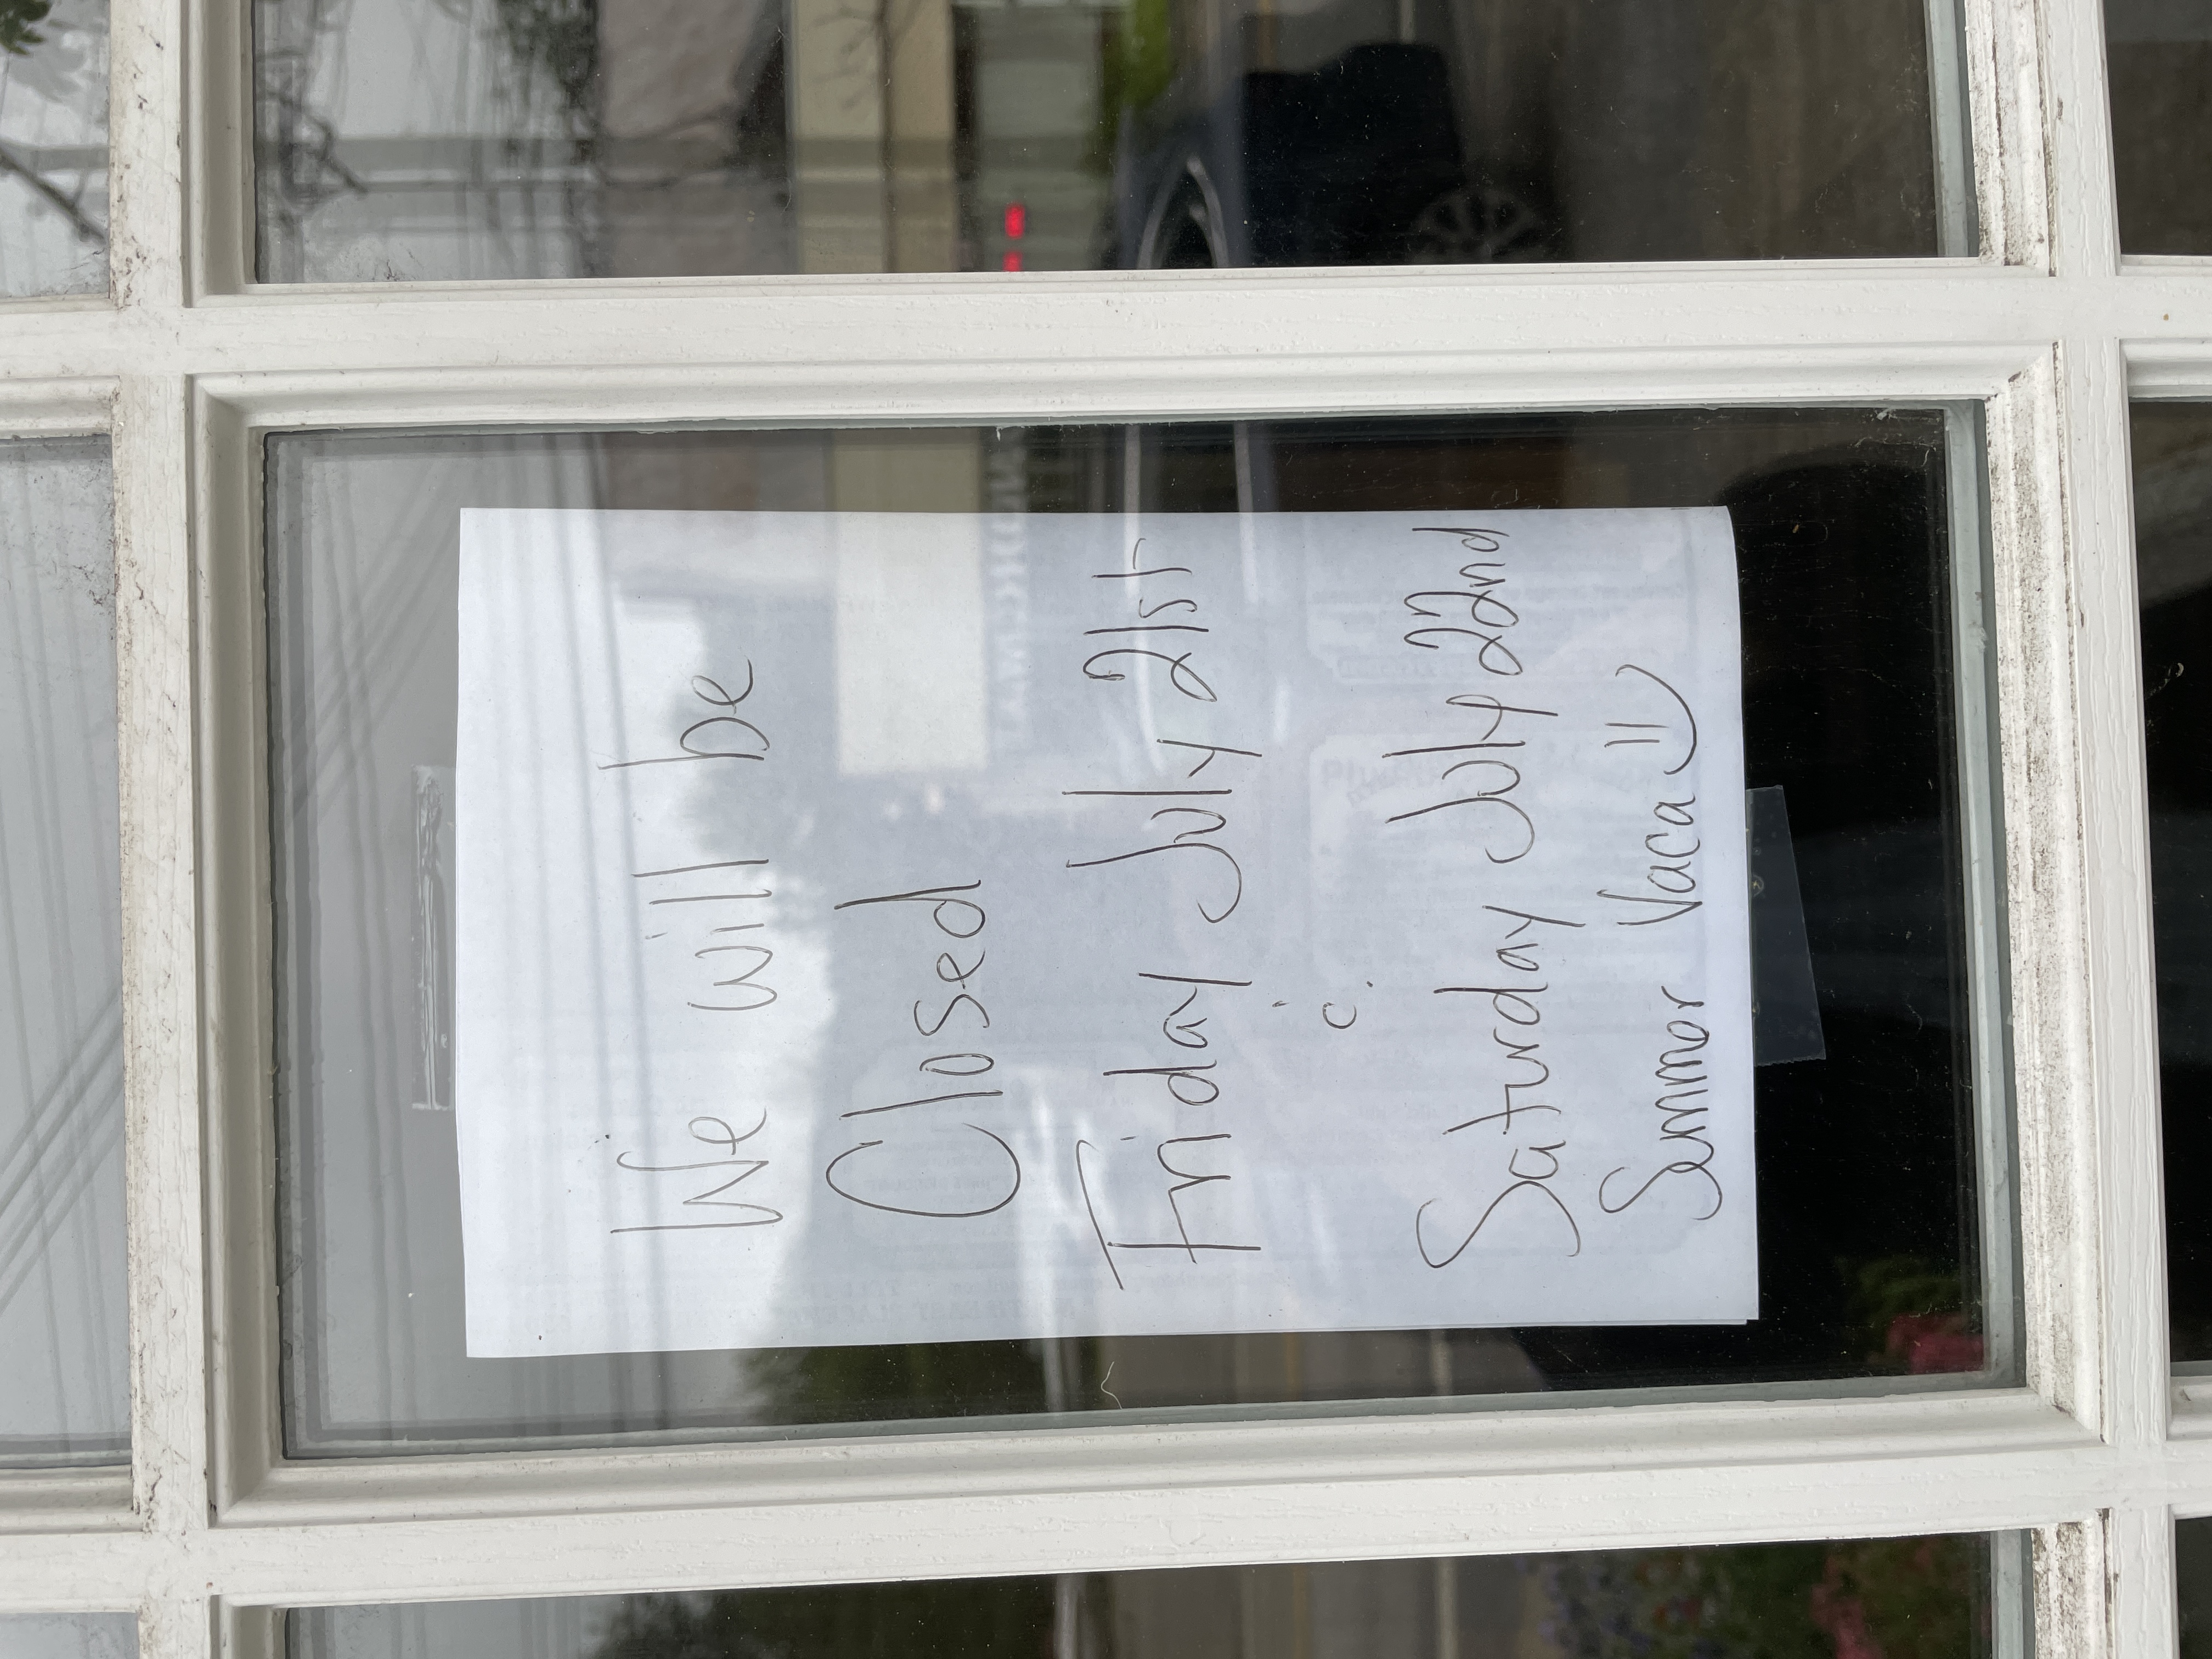 We will be
Closed
Friday July 21st
&
Saturday July 22nd
Summer Vaca =)